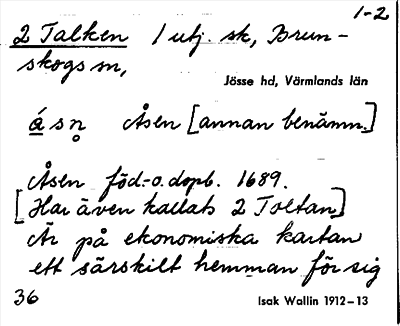 1-2
2 Talken 1 utj. sk, Brun-
skogs sn,
Jösse hd, Värmlands län
á s n̥ Åsen [annan benämn.]
Åsen föd.- o. dopb. 1689.
[Har även kallats 2 Toltan]
Är på ekonomiska kartan
ett särskilt hemman för sig
36
Isak Wallin 1912-13